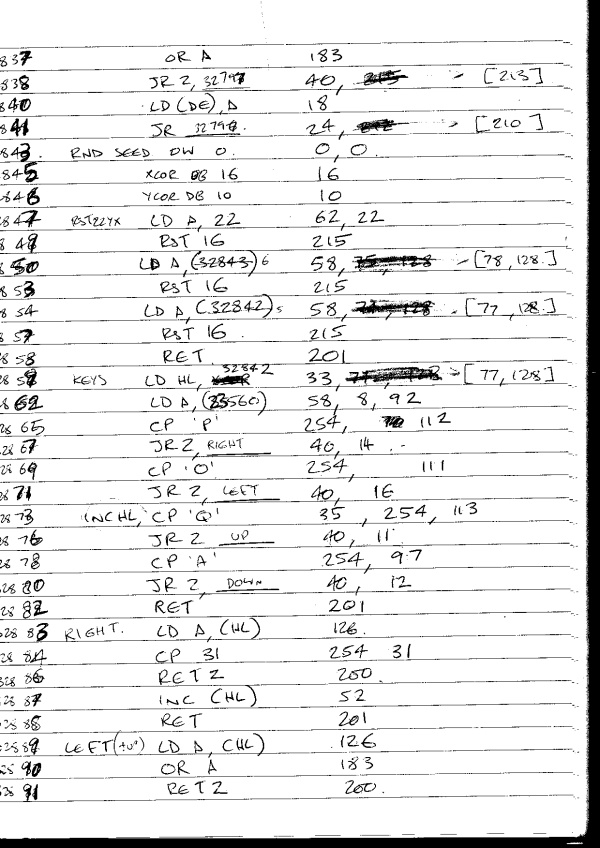 837 OR A 183
838 JR Z, 32797 40, - [213]
840 LD (DE), A 18
841 JR 32798. 24, - [210]
843. RND SEED DW 0. 0, 0.
845 XCOR DB 16 16
846 YCOR DB 10 10
847 RST22YX LD A, 22 62, 22
849 RST 16 215
850 LD A, (32843) 6 58, - [78, 128.]
853 RST 16 215
854 LD A, (32842) 5 58, - [77, 128.]
857 RST 16. 215
2858 RET 201
2859 KEYS LD HL, 32842 33, - [77, 128]
2862 LD A, (23560) 58, 8, 92
2865 CP 'P' 254, 112
2867 JR Z, RIGHT 40, 14 . -
2869 CP 'O' 254, 111
2871 JR Z, LEFT 40, 16
2873 INC HL, CP 'Q' 35, 254, 113
2876 JR Z UP 40, 11
2878 CP 'A' 254, 97
2880 JR Z, DOWN 40, 12
2882 RET 201
2883 RIGHT. LD A, (HL) 126.
2884 CP 31 254 31
2886 RET Z 200.
2887 INC (HL) 52
2888 RET 201
2889 LEFT (+UP) LD A, (HL) 126
2890 OR A 183
2891 RET Z 200.